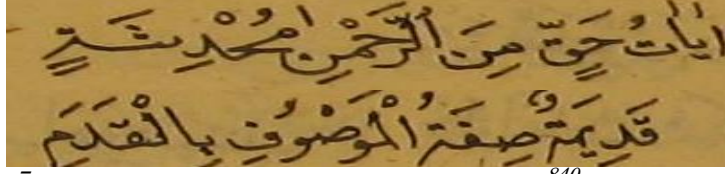 اٰيَاتُ حَقٍّ مِنَ الرَّحْمٰنِ مُحْدِثَةٍ
قَدِيمَةٌ صِفَةُ الْمَوْصُوفِ بِالْقِدَمِ